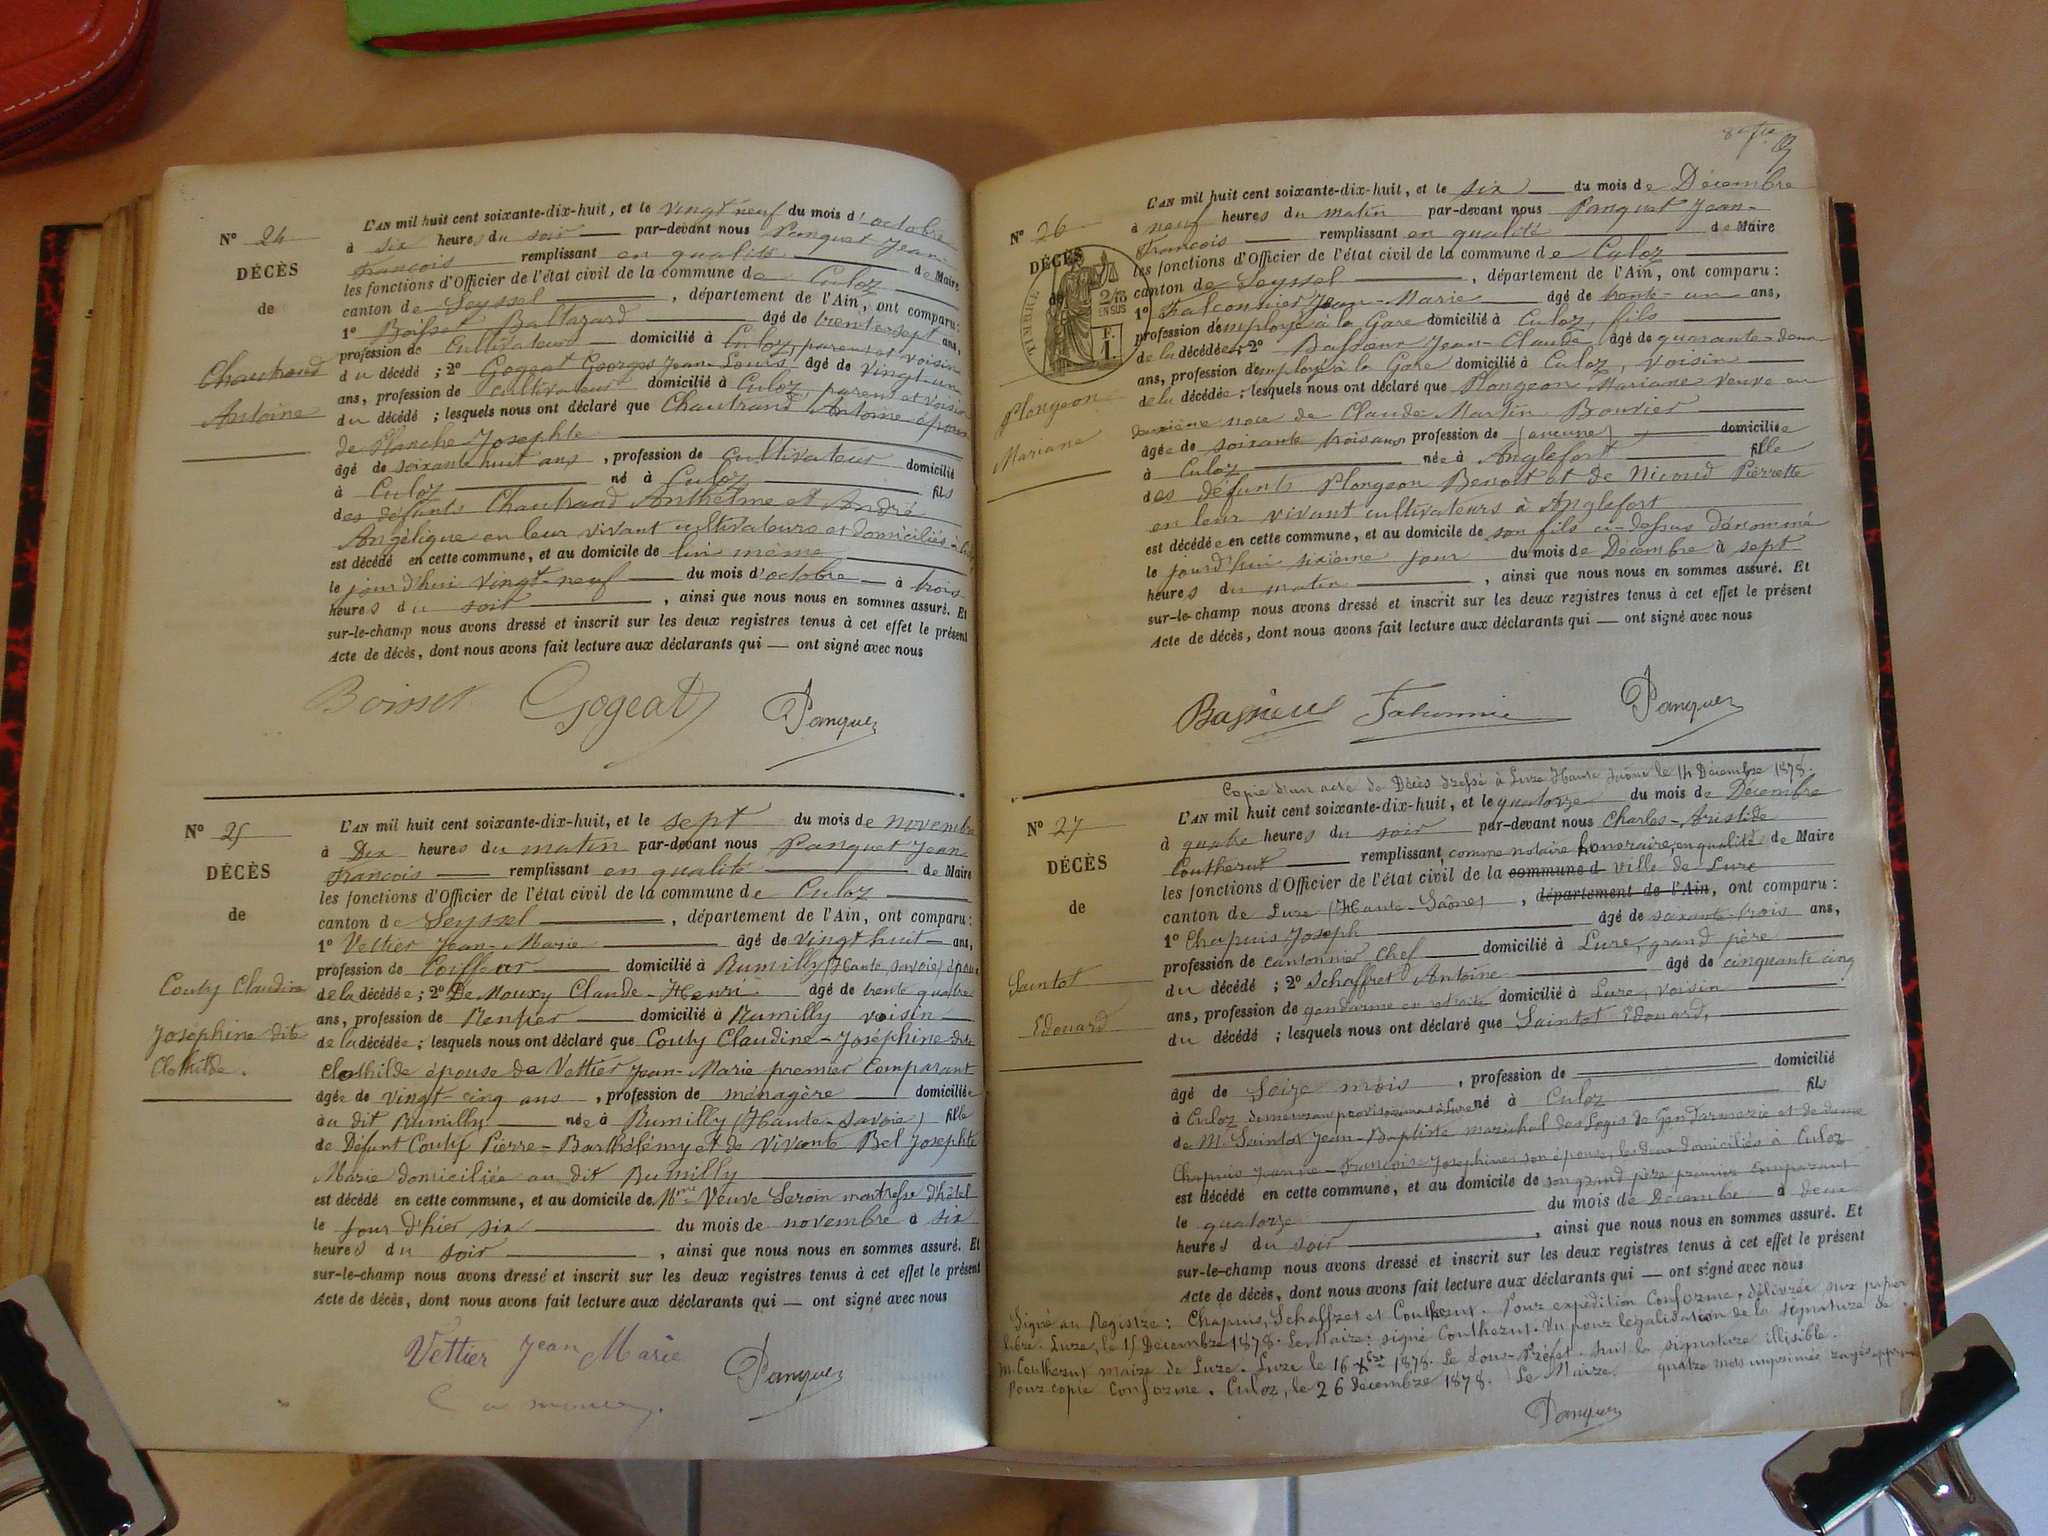 N° 24
DÉCÈS
de
Chautrand
Antoine
L'AN mil huit cent soixante-dix-huit, et le vingt neuf du mois d'octobre
à six heures du soir par-devant nous Panquet Jean-
François remplissant en qualité de Maire
les fonctions d'Officier de l'état civil de la commune de Culoz
canton de Seyssel, département de l'Ain, ont comparu:
1° Boisset Baltazard âgé de trente sept ans,
profession de Cultivateur domicilié à Culoz, parent et voisin
du décédé; 2° Gogeat Georges Jean-Louis âgé de vingt-un
ans, profession de cultivateur domicilié à Culoz, parent et voisin
du décédé; lesquels nous ont déclaré que Chautrand Antoine époux
de Planche Josephte
âgé de soixante huit ans, profession de cultivateur domicilié
à Culoz né à Culoz fils
des défunts Chautrand Anthelme et André
Angélique en leur vivant cultivateurs et domiciliés à
est décédé en cette commune, et au domicile de lui même
le jourd'hui vingt-neuf du mois d'octobre à trois
heures du soir, ainsi que nous nous en sommes assuré. Et
sur-le-champ nous avons dressé et inscrit sur les deux registres tenus à cet effet le présent
Acte de décès, dont nous avons fait lecture aux déclarants qui — ont signé avec nous
Boisset Gogeat Panquet
N° 25
DÉCÈS
de
Couty Claudine
Joséphine dite
Clothilde.
L'AN mil huit cent soixante-dix-huit, et le sept du mois de novembre
à Dix heures du matin par-devant nous Panquet Jean
François remplissant en qualité de Maire
les fonctions d'Officier de l'état civil de la commune de Culoz
canton de Seyssel, département de l'Ain, ont comparu:
1° Vettier Jean-Marie âgé de vingt huit ans,
profession de Coiffeur domicilié à Rumilly (Haute savoie) époux
de la décédée; 2° De Mouxy Claude-Henri âgé de trente quatre
ans, profession de Rentier domicilié à Rumilly voisin
de la décédée; lesquels nous ont déclaré que Couty Claudine-Joséphine dite
Clothilde épouse de Vettier Jean-Marie premier Comparant
âgée de vingt-cinq ans, profession de ménagère domiciliée
au dit Rumilly née à Rumilly (Haute-savoie) fille
de Défunt Couty Pierre-Barthélémy et de vivante Bel Josephte
Marie domiciliée au dit Rumilly
est décédé en cette commune, et au domicile de Mme Veuve Seroin maîtresse d'hôtel
le jour d'hier six du mois de novembre à six
heures du soir, ainsi que nous nous en sommes assuré. Et
sur-le-champ nous avons dressé et inscrit sur les deux registres tenus à cet effet le présent
Acte de décès, dont nous avons fait lecture aux déclarants qui — ont signé avec nous
Vettier Jean Marie Panquet
N° 26
DÉCÈS
TIMBRE
2/10
EN SUS
F.
1.
Plongeon
Mariane
L'AN mil huit cent soixante-dix-huit, et le six du mois de Décembre
à neuf heures du matin par-devant nous Panquet Jean-
François remplissant en qualité de Maire
les fonctions d'Officier de l'état civil de la commune de Culoz
canton de Seyssel, département de l'Ain, ont comparu:
1° Falconnier Jean-Marie âgé de trente-un ans,
profession d'employé à la Gare domicilié à Culoz, fils
de la décédée; 2° Jean-Claude âgé de quarante-deux
ans, profession d'employé à la Gare domicilié à Culoz, voisin
de la décédée; lesquels nous ont déclaré que Plongeon Mariane veuve en
deuxième noce de Claude-Martin Bouvier
âgée de soixante trois ans, profession de (aucune) domiciliée
à Culoz née à Anglefort fille
des défunts Plongeon Benoit et de Nicoud Pierrette
en leur vivant cultivateurs à Anglefort
est décédée en cette commune, et au domicile de son fils ci-dessus dénommé
le jourd'hui sixième jour du mois de Décembre à sept
heures du matin, ainsi que nous nous en sommes assuré. Et
sur-le-champ nous avons dressé et inscrit sur les deux registres tenus à cet effet le présent
Acte de décès, dont nous avons fait lecture aux déclarants qui — ont signé avec nous
Panquet
N° 27
DÉCÈS
de
Saintot
Edouard
Copie d'un acte de Décès dressé à Lure Haute Saône le 14 Décembre 1878.
L'AN mil huit cent soixante-dix-huit, et le quatorze du mois de Décembre
à quatre heures du soir par-devant nous Charles-Aristide
Coutherut remplissant, comme notaire honoraire, en qualité de Maire
les fonctions d'Officier de l'état civil de la commune d ville de Lure
canton de Lure (Haute-Saône), département de l'Ain, ont comparu:
1° Chapuis Joseph âgé de soixante-trois ans,
profession de cantonnier chef domicilié à Lure, grand père
du décédé; 2° Schaffret Antoine âgé de cinquante cinq
ans, profession de gendarme en retraite domicilié à Lure, voisin
du décédé; lesquels nous ont déclaré que Saintot Edouard,
âgé de Seize mois, profession de domicilié
à Culoz demeurant provisoirement à Lure né à Culoz fils
de Mr Saintot Jean-Baptiste maréchal des Logis de Gendarmerie et de dame
Chapuis Jeanne-Françoise Josephine son épouse, les deux domiciliés à Culoz
est décédé en cette commune, et au domicile de son grand père premier comparant
le quatorze du mois de Décembre à deux
heures du soir, ainsi que nous nous en sommes assuré. Et
sur-le-champ nous avons dressé et inscrit sur les deux registres tenus à cet effet le présent
Acte de décès, dont nous avons fait lecture aux déclarants qui — ont signé avec nous
Signé au Registre: Chapuis, Schaffret et Coutherut. Pour expédition Conforme, délivrée sur papier
libre. Lure, le 15 Décembre 1878. Le Maire: signé Coutherut. Vu pour légalisation de la signature de
M. Coutherut maire de Lure. Lure le 16 Xbre 1878. Le Sous-Préfet. Suit la signature illisible.
Pour copie Conforme. Culoz, le 26 Décembre 1878. Le Maire. quatre mots imprimés rayés
Panquet